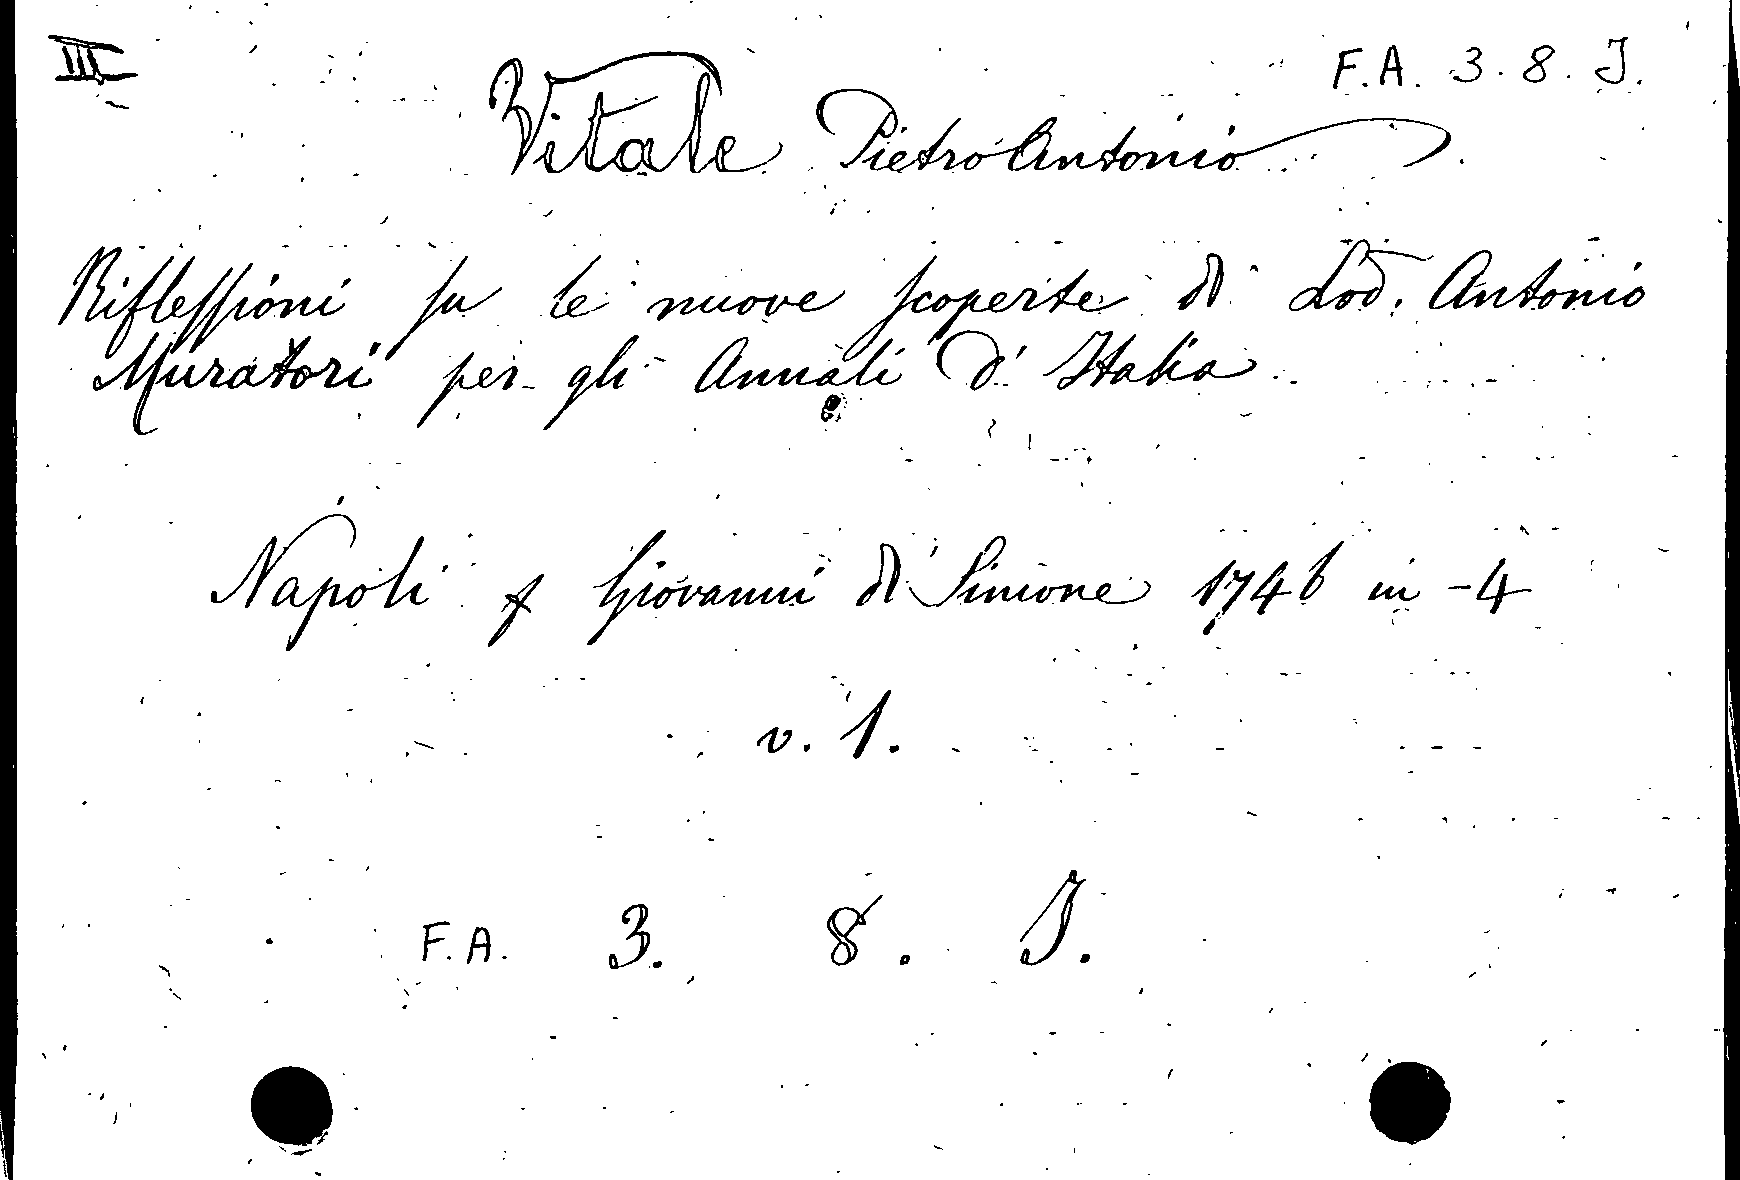 III
F.A. 3. 8. J.
Vitale Pietro Antonio
Riflessioni su le nuove scoperte di Lod. Antonio
Muratori per gli Annali d'Italia
Napoli f Giovanni di Simone 1746 in-4
v. 1.
F.A. 3. 8. J.